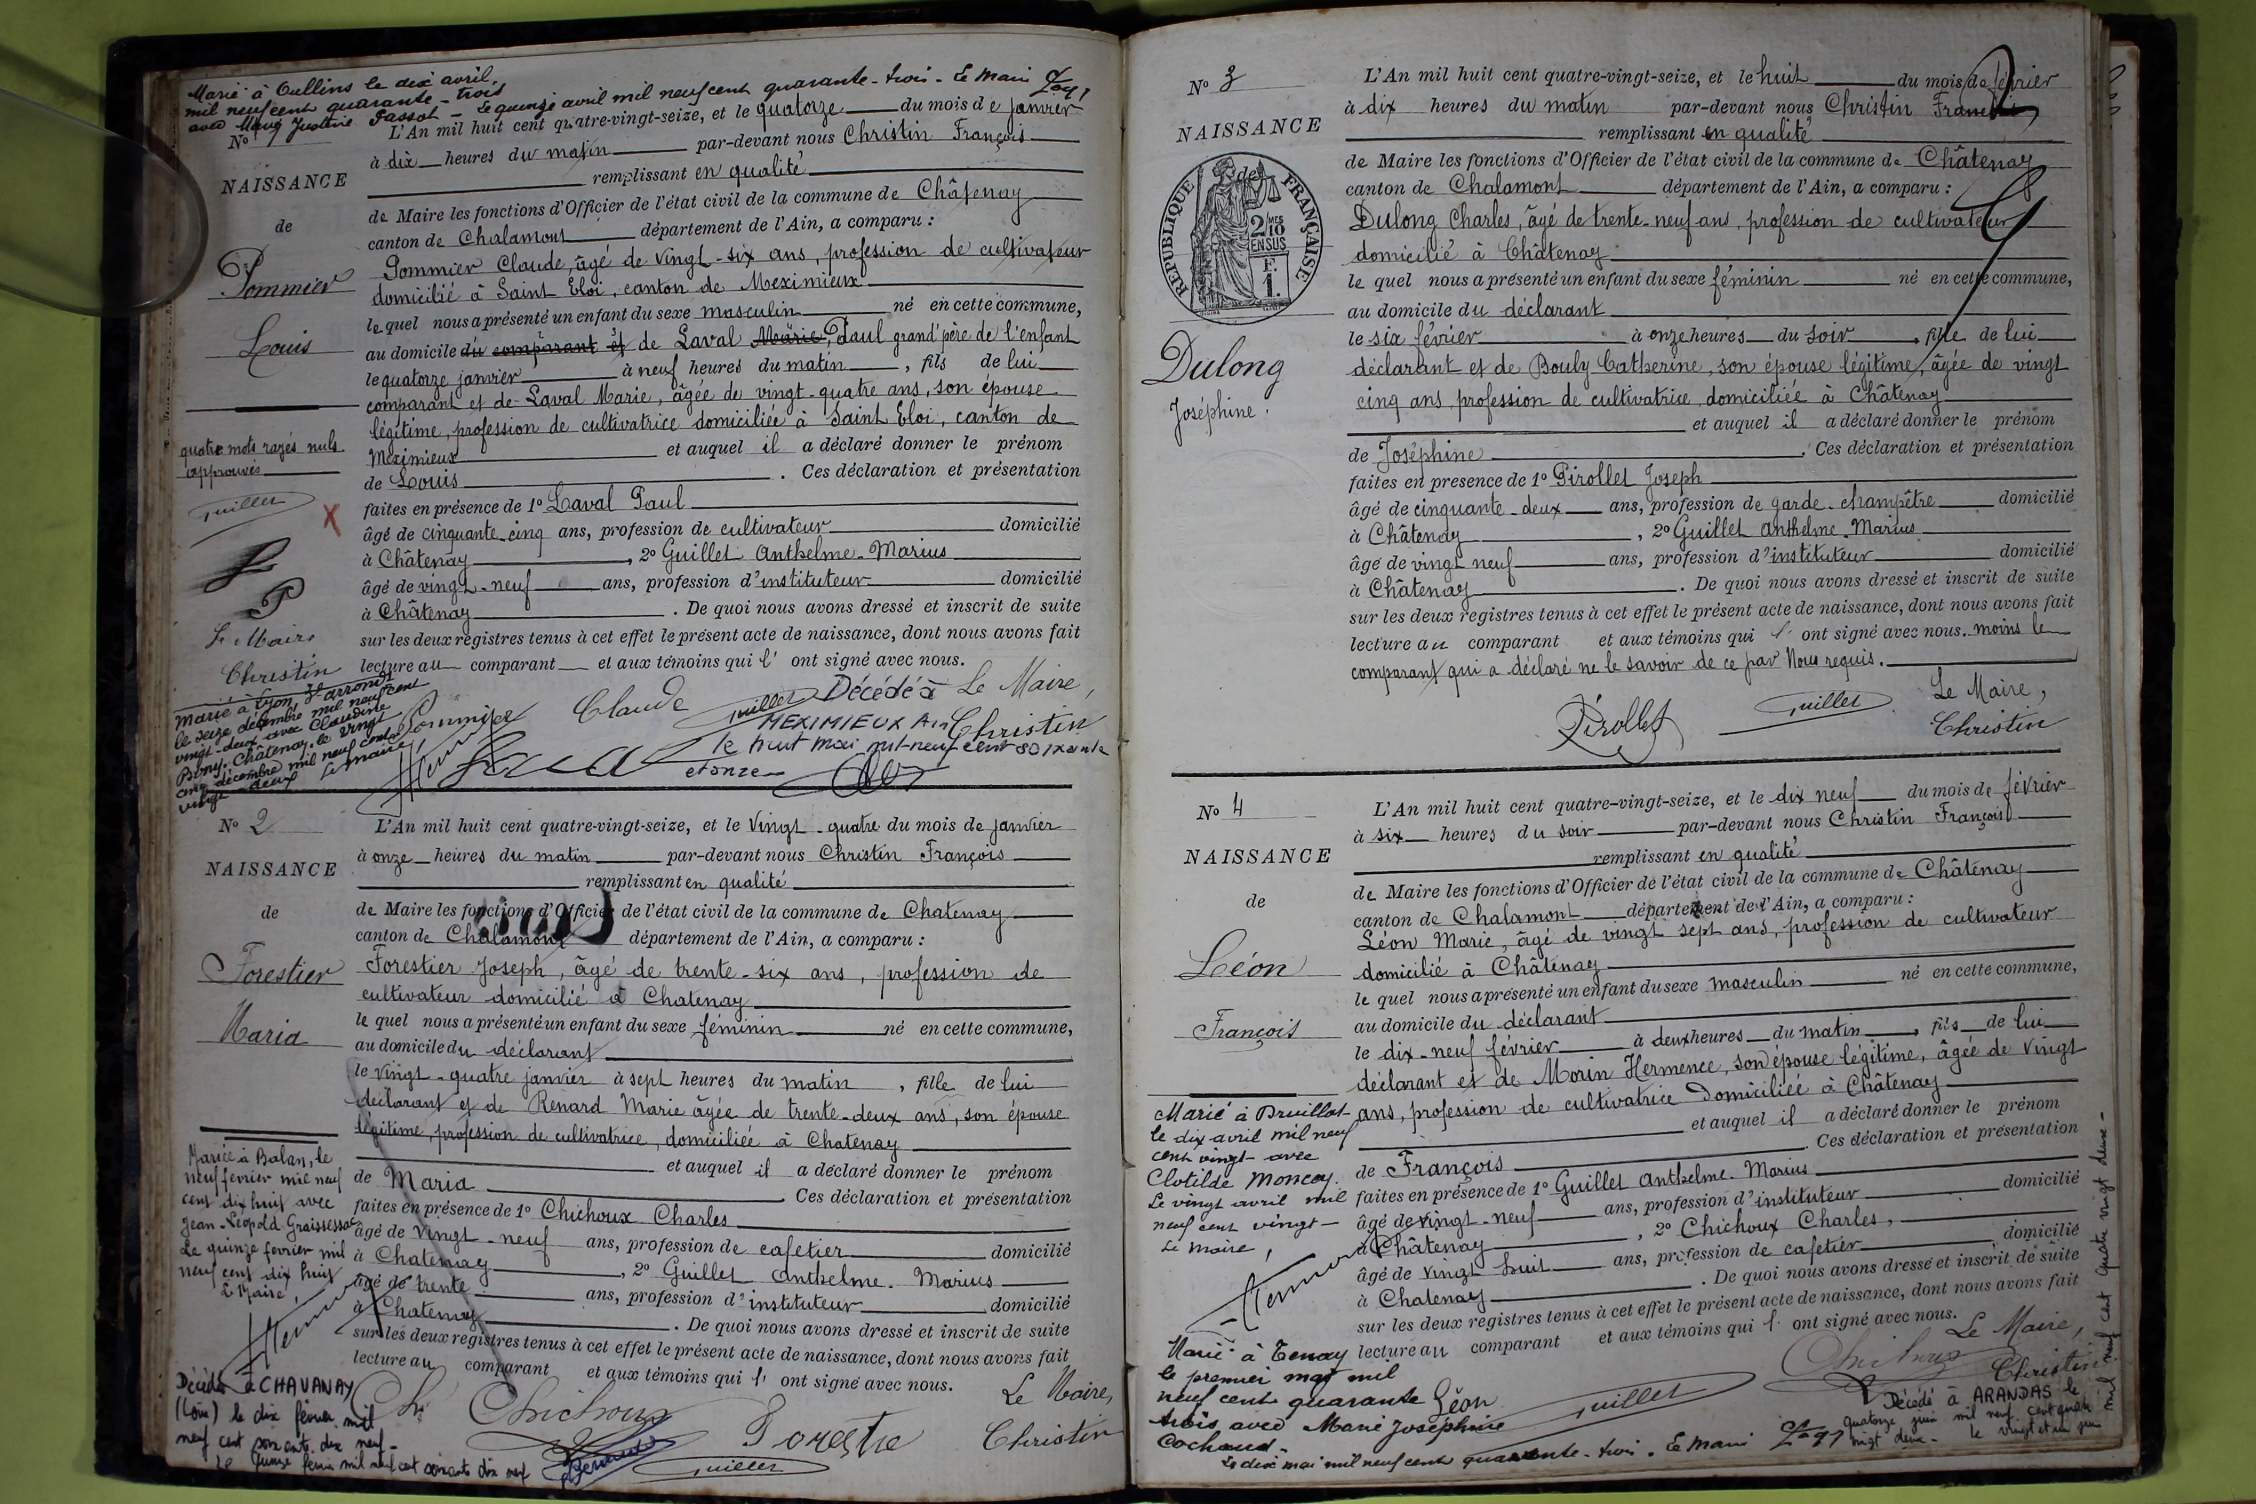 Marié à Oullins le dix avril
mil neuf cent quarante-trois
avec Marie Justine Passot - Le quinze avril mil neuf cent quarante-trois. Le Maire
No
NAISSANCE
de
Pommier
Louis
quatre mots rayés nuls
approuvés
Guillet
L
P
Le Maire
Christin
L'An mil huit cent quatre-vingt-seize, et le quatorze du mois de janvier
à dix heures du matin par-devant nous Christin François
remplissant en qualité
de Maire les fonctions d'Officier de l'état civil de la commune de Châtenay
canton de Chalamont département de l'Ain, a comparu :
Pommier Claude, âgé de vingt-six ans, profession de cultivateur
domicilié à Saint Eloi, canton de Meximieux
le quel nous a présenté un enfant du sexe masculin né en cette commune,
au domicile du comparant et de Laval Marie, Paul grand'père de l'enfant
le quatorze janvier à neuf heures du matin, fils de lui
comparant et de Laval Marie, âgée de vingt-quatre ans, son épouse
légitime, profession de cultivatrice domiciliée à Saint Eloi, canton de
Meximieux et auquel il a déclaré donner le prénom
de Louis. Ces déclaration et présentation
faites en présence de 1o Laval Paul
âgé de cinquante-cinq ans, profession de cultivateur domicilié
à Châtenay, 2o Guillet Anthelme-Marius
âgé de vingt-neuf ans, profession d'instituteur domicilié
à Châtenay. De quoi nous avons dressé et inscrit de suite
sur les deux registres tenus à cet effet le présent acte de naissance, dont nous avons fait
lecture au comparant et aux témoins qui l' ont signé avec nous.
Pommier Claude Guillet Le Maire,
Laval Christin
Décédé à
MEXIMIEUX Ain
le huit mai mil-neuf cent soixante
et onze
Marié à Lyon, 3e arrondt
le seize décembre mil neuf cent
vingt-deux avec Claudine
Bony. Châtenay, le vingt
cinq décembre mil neuf cent
vingt-deux Le Maire,
No 2
NAISSANCE
de
Forestier
Maria
L'An mil huit cent quatre-vingt-seize, et le Vingt-quatre du mois de janvier
à onze heures du matin par-devant nous Christin François
remplissant en qualité
de Maire les fonctions d'Officier de l'état civil de la commune de Chatenay
canton de Chalamont département de l'Ain, a comparu :
Forestier Joseph, âgé de trente-six ans, profession de
cultivateur domicilié à Chatenay
le quel nous a présenté un enfant du sexe féminin né en cette commune,
au domicile du déclarant
le vingt-quatre janvier à sept heures du matin, fille de lui
déclarant et de Renard Marie âgée de trente-deux ans, son épouse
légitime, profession de cultivatrice, domiciliée à Chatenay
et auquel il a déclaré donner le prénom
de Maria. Ces déclaration et présentation
faites en présence de 1o Chichoux Charles
âgé de Vingt-neuf ans, profession de cafetier domicilié
à Chatenay, 2o Guillet Anthelme. Marius
âgé de trente ans, profession d'instituteur domicilié
à Chatenay. De quoi nous avons dressé et inscrit de suite
sur les deux registres tenus à cet effet le présent acte de naissance, dont nous avons fait
lecture au comparant et aux témoins qui l' ont signé avec nous.
Ch Chichoux Forestie Le Maire,
Guillet Christin
Mariée à Balan, le
neuf février mil neuf
cent dix huit avec
Jean-Léopold Graissessac
Le quinze fevrier mil
neuf cent dix huit
Le Maire,
Décédée à CHAVANAY
(Loire) le dix février mil
neuf cent soixante dix neuf-
Le Quinze février mil neuf cent soixante dix neuf
No 3
NAISSANCE
de
REPUBLIQUE FRANÇAISE
2 MES
10
EN SUS
F.
1.
Dulong
Joséphine.
L'An mil huit cent quatre-vingt-seize, et le huit du mois de février
à dix heures du matin par-devant nous Christin François
remplissant en qualité
de Maire les fonctions d'Officier de l'état civil de la commune de Châtenay
canton de Chalamont département de l'Ain, a comparu :
Dulong Charles, âgé de trente-neuf ans, profession de cultivateur
domicilié à Châtenay
le quel nous a présenté un enfant du sexe féminin né en cette commune,
au domicile du déclarant
le six février à onze heures du soir, fille de lui
déclarant et de Bouly Catherine, son épouse légitime, âgée de vingt
cinq ans, profession de cultivatrice, domiciliée à Châtenay
et auquel il a déclaré donner le prénom
de Joséphine. Ces déclaration et présentation
faites en presence de 1o Pirollet Joseph
âgé de cinquante-deux ans, profession de garde-champêtre domicilié
à Châtenay, 2o Guillet Anthelme. Marius
âgé de vingt neuf ans, profession d'instituteur domicilié
à Châtenay. De quoi nous avons dressé et inscrit de suite
sur les deux registres tenus à cet effet le présent acte de naissance, dont nous avons fait
lecture au comparant et aux témoins qui l' ont signé avec nous. moins le
comparant qui a déclaré ne le savoir de ce par Nous requis.
Pirollet Guillet Le Maire,
Christin
No 4
NAISSANCE
de
Léon
François
L'An mil huit cent quatre-vingt-seize, et le dix neuf du mois de février
à six heures du soir par-devant nous Christin François
remplissant en qualité
de Maire les fonctions d'Officier de l'état civil de la commune de Châtenay
canton de Chalamont département de l'Ain, a comparu :
Léon Marie, âgé de vingt sept ans, profession de cultivateur
domicilié à Châtenay
le quel nous a présenté un enfant du sexe masculin né en cette commune,
au domicile du déclarant
le dix-neuf février à deux heures du matin, fils de lui
déclarant et de Morin Hermence, son épouse légitime, âgée de Vingt
ans, profession de cultivatrice Domiciliée à Châtenay
et auquel il a déclaré donner le prénom
de François. Ces déclaration et présentation
faites en présence de 1o Guillet Anthelme. Marius
âgé de vingt-neuf ans, profession d'instituteur domicilié
à Châtenay, 2o Chichoux Charles,
âgé de vingt huit ans, profession de cafetier domicilié
à Chatenay. De quoi nous avons dressé et inscrit de suite
sur les deux registres tenus à cet effet le présent acte de naissance, dont nous avons fait
lecture au comparant et aux témoins qui l' ont signé avec nous.
Léon Guillet Chichoux Le Maire,
Christin
Marié à Druillat
le dix avril mil neuf
cent vingt avec
Clotilde Moncey.
Le vingt avril mil
neuf cent vingt-
Le Maire,
Marié à Tenay
le premier mai mil
neuf cent quarante
trois avec Marie Joséphine
Cochaud-
Le dix mai mil neuf cent quarante-trois. Le Maire
Décédé à ARANDAS le
quatorze juin mil neuf cent quatre
vingt deux- le vingt et un juin
mil neuf cent quatre vingt deux-